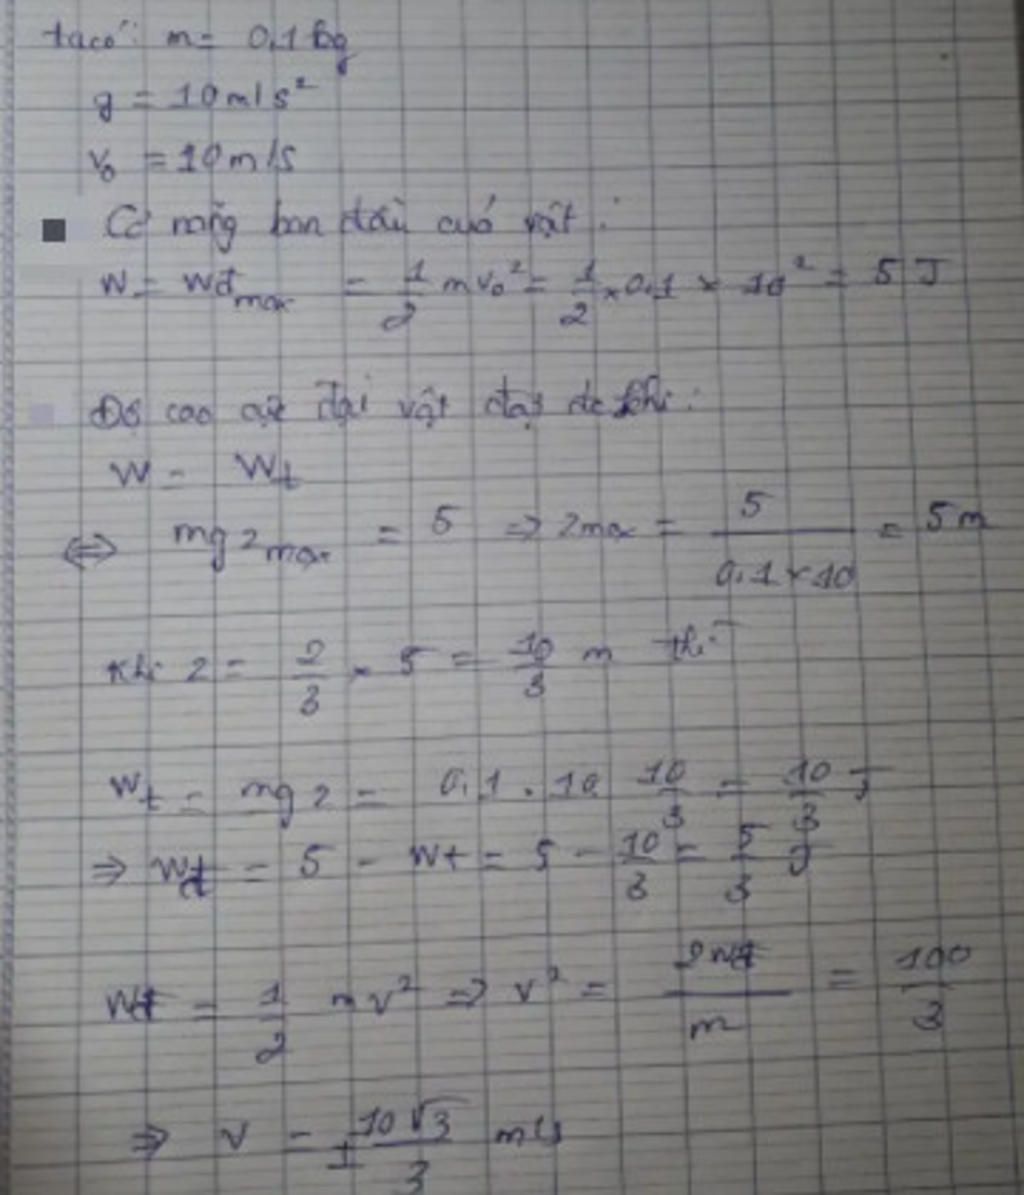 ta có: m = 0,1 kg
g = 10 m/s²
v₀ = 10 m/s
Cơ năng ban đầu của vật :
W = Wđmax = 1/2 mv₀² = 1/2 × 0,1 × 10² = 5 J
Độ cao cực đại vật đạt đc khi:
W = Wt
⇔ mg zmax = 5 ⇒ zmax = 5/(0,1 × 10) = 5 m
Khi z = 2/3 × 5 = 10/3 m thì
Wt = mg z = 0,1 . 10 10/3 = 10/3 J
⇒ Wđ = 5 - Wt = 5 - 10/3 = 5/3 J
Wđ = 1/2 mv² ⇒ v² = 2Wđ/m = 100/3
⇒ v = ± 10√3/3 m/s